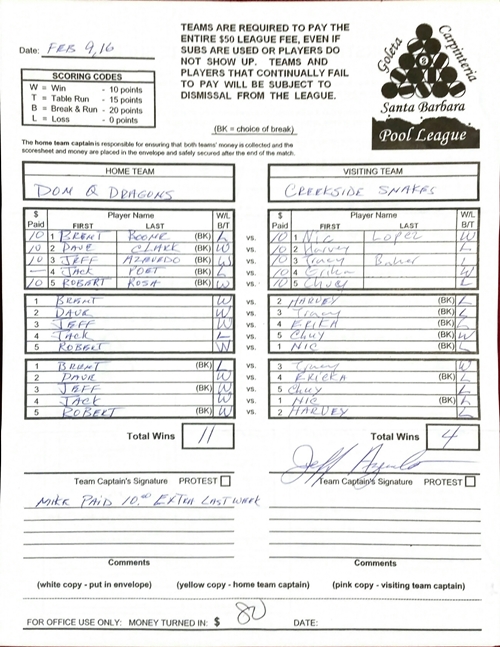 Date: FEB 9, 16
TEAMS ARE REQUIRED TO PAY THE
ENTIRE $50 LEAGUE FEE, EVEN IF
SUBS ARE USED OR PLAYERS DO
NOT SHOW UP. TEAMS AND
PLAYERS THAT CONTINUALLY FAIL
TO PAY WILL BE SUBJECT TO
DISMISSAL FROM THE LEAGUE.
Goleta Carpinteria
Santa Barbara
Pool League
SCORING CODES
W = Win - 10 points
T = Table Run - 15 points
B = Break & Run - 20 points
L = Loss - 0 points
(BK = choice of break)
The home team captain is responsible for ensuring that both teams' money is collected and the
scoresheet and money are placed in the envelope and safely secured after the end of the match.
HOME TEAM VISITING TEAM
DOM Q DRAGONS CREEKSIDE SNAKES
$ Paid Player Name FIRST LAST W/L B/T $ Paid Player Name FIRST LAST W/L B/T
10 1 BRENT BOONE (BK) L vs. 10 1 Nic LOPEZ W
10 2 DAVE CLARK (BK) W vs. 10 2 Harvey L
10 3 JEFF AZEVEDO (BK) W vs. 10 3 Tracy Baker L
— 4 JACK POET (BK) L vs. 10 4 Erika W
10 5 ROBERT ROSA (BK) W vs. 10 5 Chuy L
1 BRENT W vs. 2 HARVEY (BK) L
2 DAVE W vs. 3 Tracy (BK) L
3 JEFF W vs. 4 ERIKA (BK) L
4 JACK L vs. 5 CHUY (BK) W
5 ROBERT W vs. 1 NIC (BK) L
1 BRENT (BK) L vs. 3 Tracy W
2 DAVE W vs. 4 ERICKA (BK) L
3 JEFF (BK) W vs. 5 CHUY L
4 JACK W vs. 1 NIC (BK) L
5 ROBERT (BK) W vs. 2 HARVEY L
Total Wins 11 Total Wins 4
Team Captain's Signature PROTEST Team Captain's Signature PROTEST
MIKE PAID 10.00 EXTRA LAST WEEK
Comments Comments
(white copy - put in envelope) (yellow copy - home team captain) (pink copy - visiting team captain)
FOR OFFICE USE ONLY: MONEY TURNED IN: $ 80 DATE: